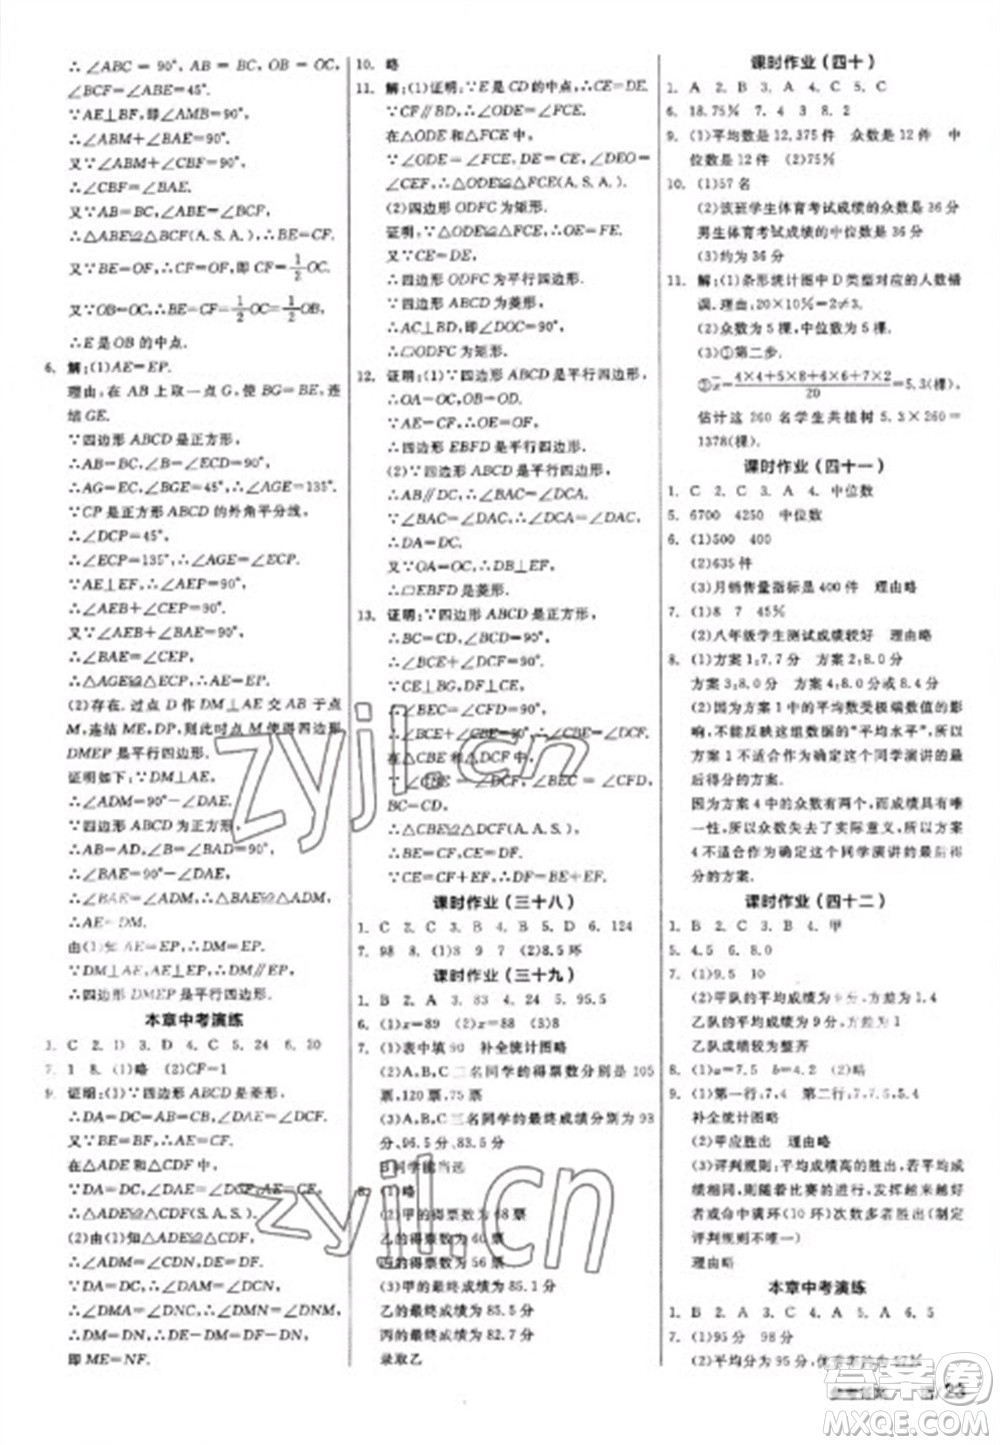 ∴∠ABC=90°,AB=BC,OB=OC,
∴∠CBF=∠ABE=45°.
∵AE⊥BF,即∠AMB=90°,
∴∠ABM+∠BAE=90°.
又∵∠ABM+∠CBF=90°,
∴∠CBF=∠BAE.
又∵AB=BC,∠ABE=∠BCF,
∴△ABE≌△BCF(A.S.A.),∴BE=CF.
又∵BE=OF,∴CF=OF,即CF=1/2OC.
又∵OB=OC,∴BE=CF=1/2OC=1/2OB,
∴E是OB的中点.
6. 解:(1)AE=EP.
理由:在AB上取一点G,使BG=BE,连
结GE.
∵四边形ABCD是正方形,
∴AB=BC,∠B=∠ECD=90°,
∴AG=EC,∠BGE=45°,∴∠AGE=135°.
∵CP是正方形ABCD的外角平分线,
∴∠DCP=45°,
∴∠ECP=135°,∴∠AGE=∠ECP.
∵AE⊥EF,∴∠AEP=90°,
∴∠AEB+∠CEP=90°.
又∵∠AEB+∠BAE=90°,
∴∠BAE=∠CEP,
∴△AGE≌△ECP,∴AE=EP.
(2)存在.过点D作DM⊥AE交AB于点
M,连结ME,DP,则此时点M使得四边形
DMEP是平行四边形.
证明如下:∵DM⊥AE,
∴∠ADM=90°-∠DAE.
∵四边形ABCD是正方形,
∴AB=AD,∠B=∠BAD=90°,
∴∠BAE=90°-∠DAE,
∴∠BAE=∠ADM,∴△ABE≌△DAM,
∴AE=DM.
由(1)知AE=EP,∴DM=EP.
∵DM⊥AE,EP⊥AE,∴DM∥EP,
∴四边形DMEP是平行四边形.
本章中考演练
1. C 2. D 3. D 4. C 5. 24 6. 20
7. 1 8. (1)略 (2)CF=1
9. 证明:(1)∵四边形ABCD是菱形,
∴DA=DC=AB=BC,∠DAE=∠DCF.
又∵BE=BF,∴AE=CF.
在△ADE和△CDF中,
∵DA=DC,∠DAE=∠DCF,AE=CF,
∴△ADE≌△CDF(S.A.S.).
(2)由(1)知△ADE≌△CDF,
∴∠ADM=∠CDN,DE=DF.
∵DA=DC,∴∠DAM=∠DCN,
∴∠DMA=∠DNC,∴△DMA≌△DNC,
∴DM=DN,∴DE-DM=DF-DN,
即ME=NF.
10. 略
11. 解:(1)证明:∵E是CD的中点,∴CE=DE.
∵CF∥BD,∴∠ODE=∠FCE.
在△ODE和△FCE中,
∵∠ODE=∠FCE,DE=CE,∠DEO=
∠CEF,∴△ODE≌△FCE(A.S.A.).
(2)四边形ODFC为矩形.
证明:∵△ODE≌△FCE,∴OE=FE.
又∵CE=DE,
∴四边形ODFC为平行四边形.
∵四边形ABCD为菱形,
∴AC⊥BD,即∠DOC=90°,
∴▱ODFC为矩形.
12. 证明:(1)∵四边形ABCD是平行四边形,
∴OA=OC,OB=OD.
∵AE=CF,∴OE=OF,
∴四边形EBFD是平行四边形.
(2)∵四边形ABCD是平行四边形,
∴AB∥DC,∴∠BAC=∠DCA.
∵∠BAC=∠DAC,∴∠DCA=∠DAC,
∴DA=DC.
又∵OA=OC,∴DB⊥EF,
∴▱EBFD是菱形.
13. 证明:∵四边形ABCD是正方形,
∴BC=CD,∠BCD=90°,
∴∠BCE+∠DCF=90°.
∵BE⊥CE,DF⊥CF,
∴∠BEC=∠CFD=90°,
∴∠BCE+∠CBE=90°,∴∠CBE=∠DCF.
在△CBE和△DCF中,
∵∠CBE=∠DCF,∠BEC=∠CFD,
BC=CD,
∴△CBE≌△DCF(A.A.S.),
∴BE=CF,CE=DF.
∵CE=CF+EF,∴DF=BE+EF.
课时作业(三十八)
1. C 2. C 3. B 4. B 5. D 6. 124
7. 98 8. (1)8 9 7 (2)8.5环
课时作业(三十九)
1. B 2. A 3. 83 4. 24 5. 95.5
6. (1)x=89 (2)x=90 (3)8
7. (1)表中填90 补全统计图略
(2)A,B,C三名同学的得票数分别是105
票,120票,75票
(3)A,B,C三名同学的最终成绩分别为93
分,96.5分,83.5分
B同学能当选
8. (1)略
(2)甲的得票数为68票
乙的得票数为60票
丙的得票数为56票
(3)甲的最终成绩为85.1分
乙的最终成绩为85.5分
丙的最终成绩为82.7分
录取乙
课时作业(四十)
1. A 2. B 3. A 4. C 5. C
6. 18.75% 7. 4 3 8. 2
9. (1)平均数是12.375件 众数是12件 中
位数是12件 (2)75%
10. (1)57名
(2)该班学生体育考试成绩的众数是36分
男生体育考试成绩的中位数是36分
(3)约为36分
11. 解:(1)条形统计图中D类型对应的人数错
误.理由:20×10%=2≠3.
(2)众数为5棵,中位数为5棵.
(3)①第二步.
②x̄=(4×4+5×8+6×6+7×2)/20=5.3(棵),
估计这260名学生共植树5.3×260=
1378(棵).
课时作业(四十一)
1. C 2. C 3. A 4. 中位数
5. 6700 4250 中位数
6. (1)500 400
(2)635件
(3)月销售量指标是400件 理由略
7. (1)8 7 45%
(2)八年级学生测试成绩较好 理由略
8. (1)方案1:7.7分 方案2:8.0分
方案3:8.0分 方案4:8.0分或8.4分
(2)因为方案1中的平均数受极端数值的影
响,不能反映这组数据的“平均水平”,所以
方案1不适合作为这个同学演讲的最
后得分的方案.
因为方案4中的众数有两个,而且众数具有唯
一性,所以众数失去了实际意义,所以方案
4不适合作为这个同学演讲的最后得分
的方案.
课时作业(四十二)
1. B 2. C 3. B 4. 甲
5. 4.5 6. 8.0
7. (1)9.5 10
(2)甲队的平均成绩为9分,方差为1.4
乙队的平均成绩为9分,方差为1
乙队成绩较为整齐
8. (1)a=7.5 b=4.2 (2)略
9. (1)第一行:7,4 第二行:7.5,5.4
补全统计图略
(2)甲应胜出 理由略
(3)评判规则:平均成绩高的胜出,如果平均
成绩相同,则随着比赛的进行,发挥越来越好
者或命中满环(10环)次数多者胜出(制定
评判规则不唯一).
理由略
本章中考演练
1. B 2. A 3. C 4. A 5. A 6. 5
7. (1)95分 98分
(2)平均分为95分,优秀率约为67%
zyjl.cn
zyjl.cn
答案圈
MXQE.COM
23